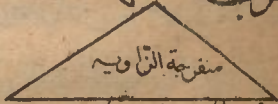 منفرجة الزاويه